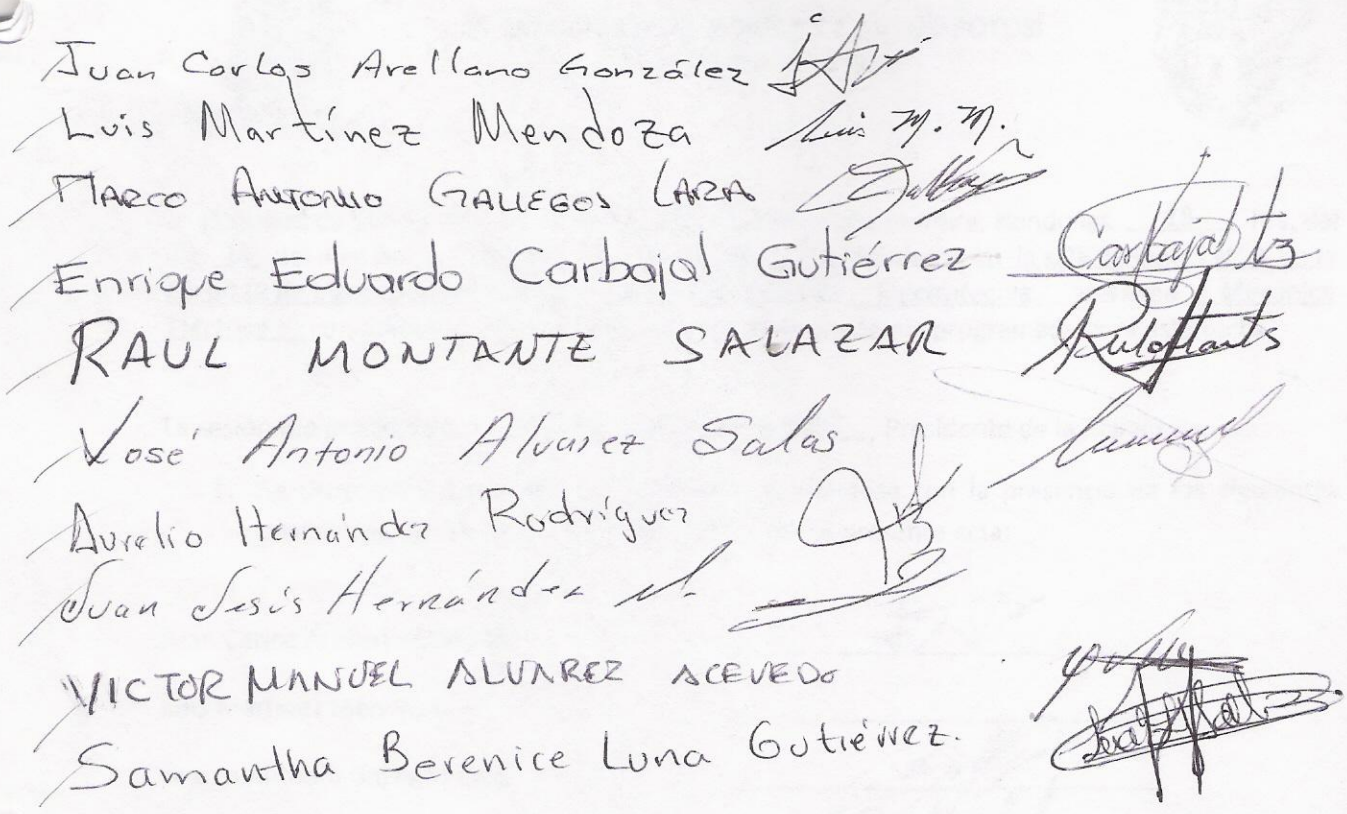 Juan Carlos Arellano González
Luis Martínez Mendoza Luis M. M.
MARCO ANTONIO GALLEGOS LARA
Enrique Eduardo Carbajal Gutiérrez Carbajal
RAUL MONTANTE SALAZAR
José Antonio Alvarez Salas
Aurelio Hernández Rodríguez
Juan Jesús Hernández
VICTOR MANUEL ALVAREZ ACEVEDO
Samantha Berenice Luna Gutiérrez.